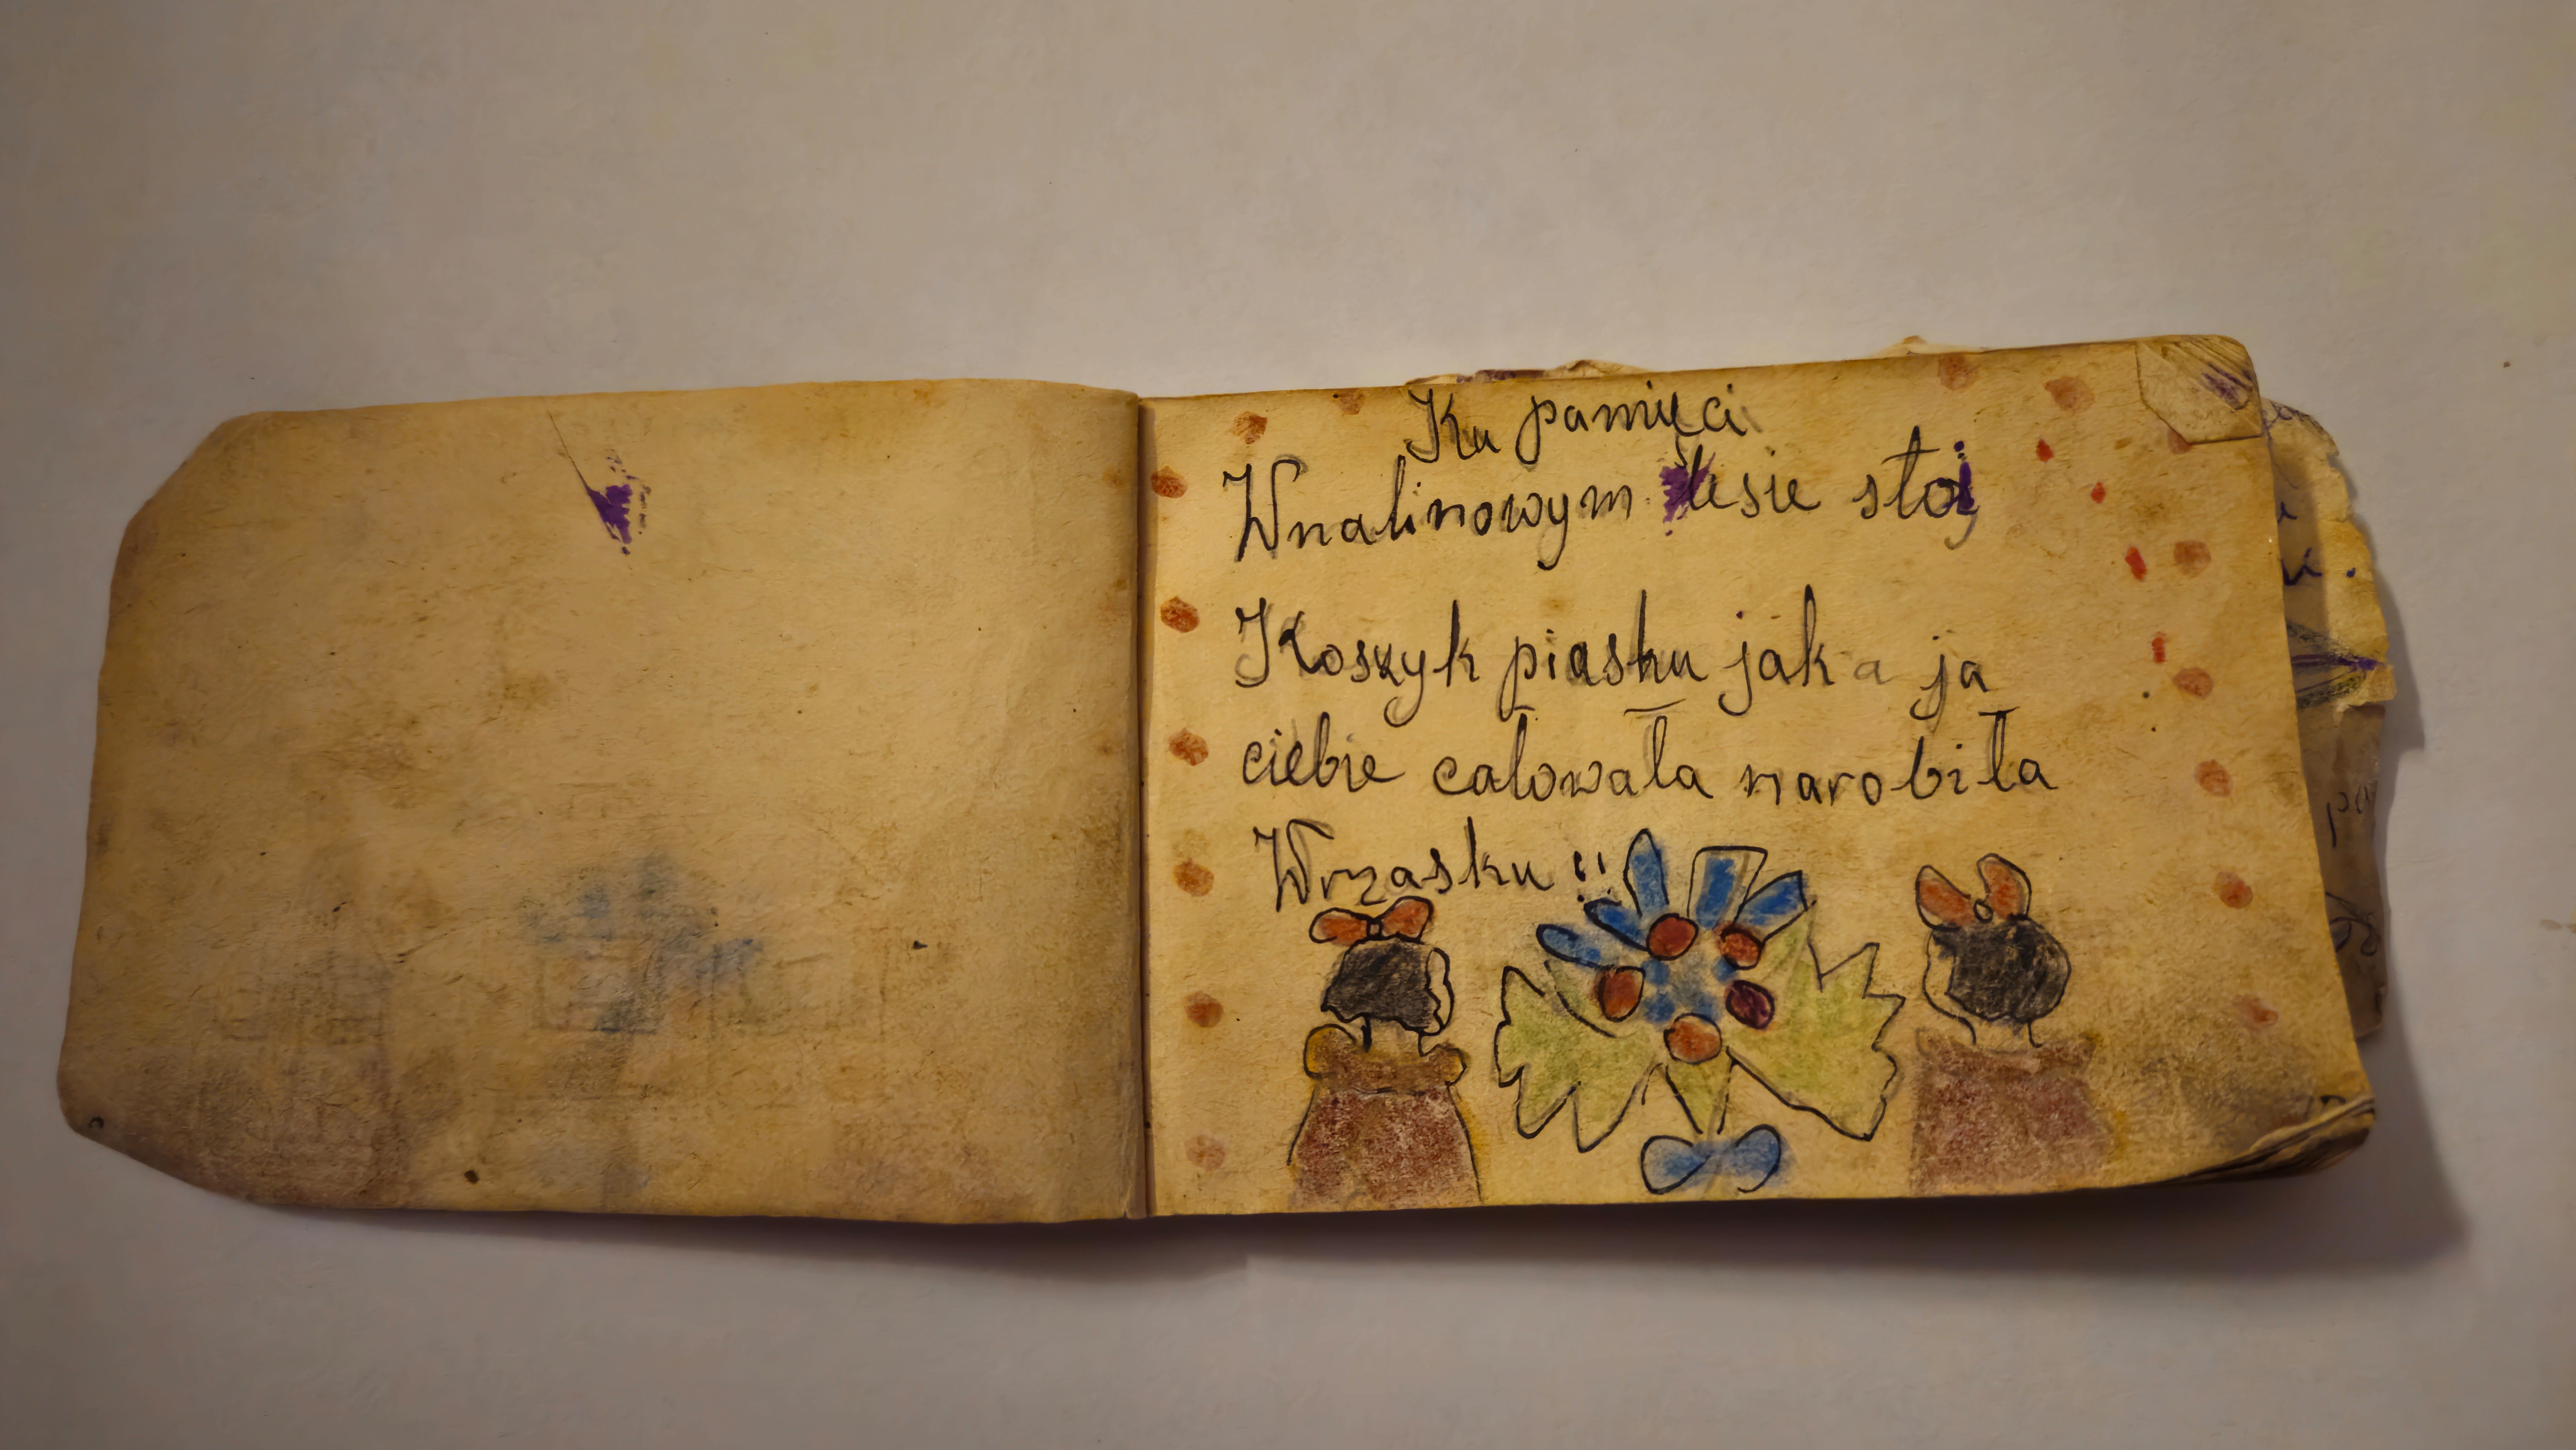 Ku pamięci
Wnalinowym lesie stoi
Koszyk piasku jak a ja
ciebie całowała narobiła
Wrzasku !!